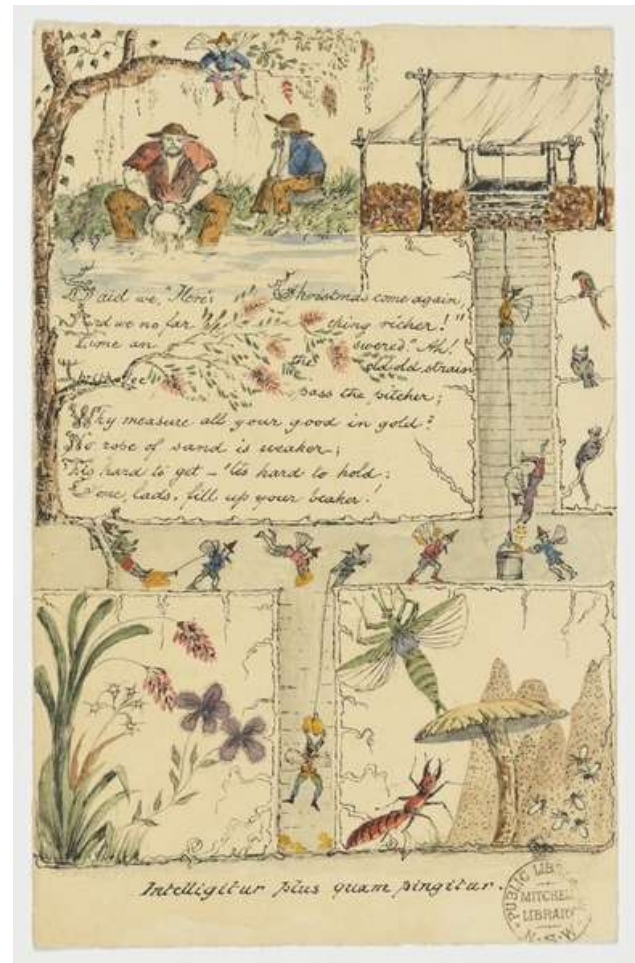 Said we, "Here's Christmas come again,
And we no far thing richer!"
Time an swered "Ah! the old, old strain
pass the pitcher;
Why measure all your good in gold?
No rope of sand is weaker;
'Tis hard to get – 'tis hard to hold:
Come, lads, fill up your beaker!
Intelligitur plus quam pingitur.
PUBLIC LIB
MITCHELL
LIBRARY
N.S.W